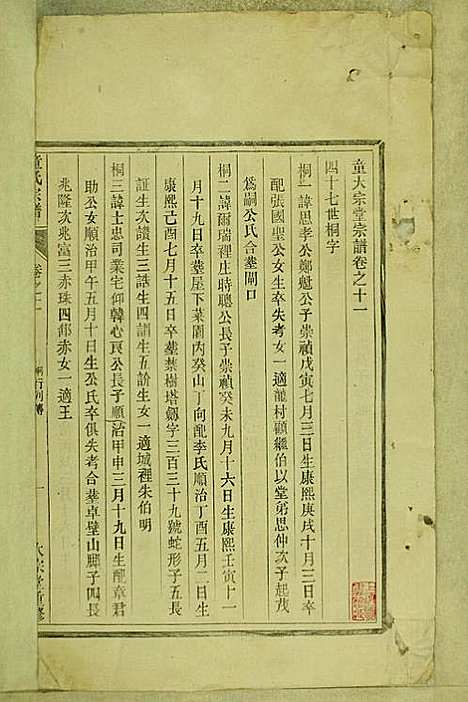 童大宗堂宗譜卷之十一
四十七世桐字
桐一諱思孝公鄭魁公子崇禎戊寅七月三日生康熙庚戌十月三日卒
配張國聖公女生卒失考女一適龍村顧繼伯以堂弟思仲次子起茂
為嗣公氏合塟閘口
桐二諱爾瑞裡庄時聰公長子崇禎癸未九月十六日生康熙壬寅十一
月十九日卒塟屋下菜園內癸山丁向配李氏順治丁酉五月二日生
康熙己酉七月十五日卒塟禁樹塔劔字三百三十九號蛇形子五長
証生次讀生三誥生四譜生五訡生女一適城裡朱伯明
桐三諱士忠司業宅仰韓心良公長子順治甲申三月十九日生配章君
助公女順治甲午五月十日生公氏卒俱失考合塟卓壁山腳子四長
兆隆次兆富三赤珠四郝赤女一適王
童氏宗譜
卷之十一
桐行列傳
大宗堂重修